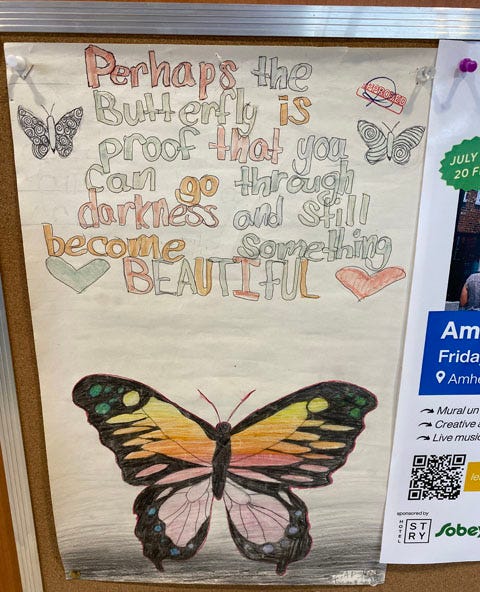 Perhaps the
Butterfly is
proof that you
can go through
darkness and still
become something
BEAUTIFUL
APPROVED
JULY
20 F
Am
Frida
Amhe
Mural un
Creative a
Live music
lea
sponsored by
HOTEL
ST
RY
Sobey